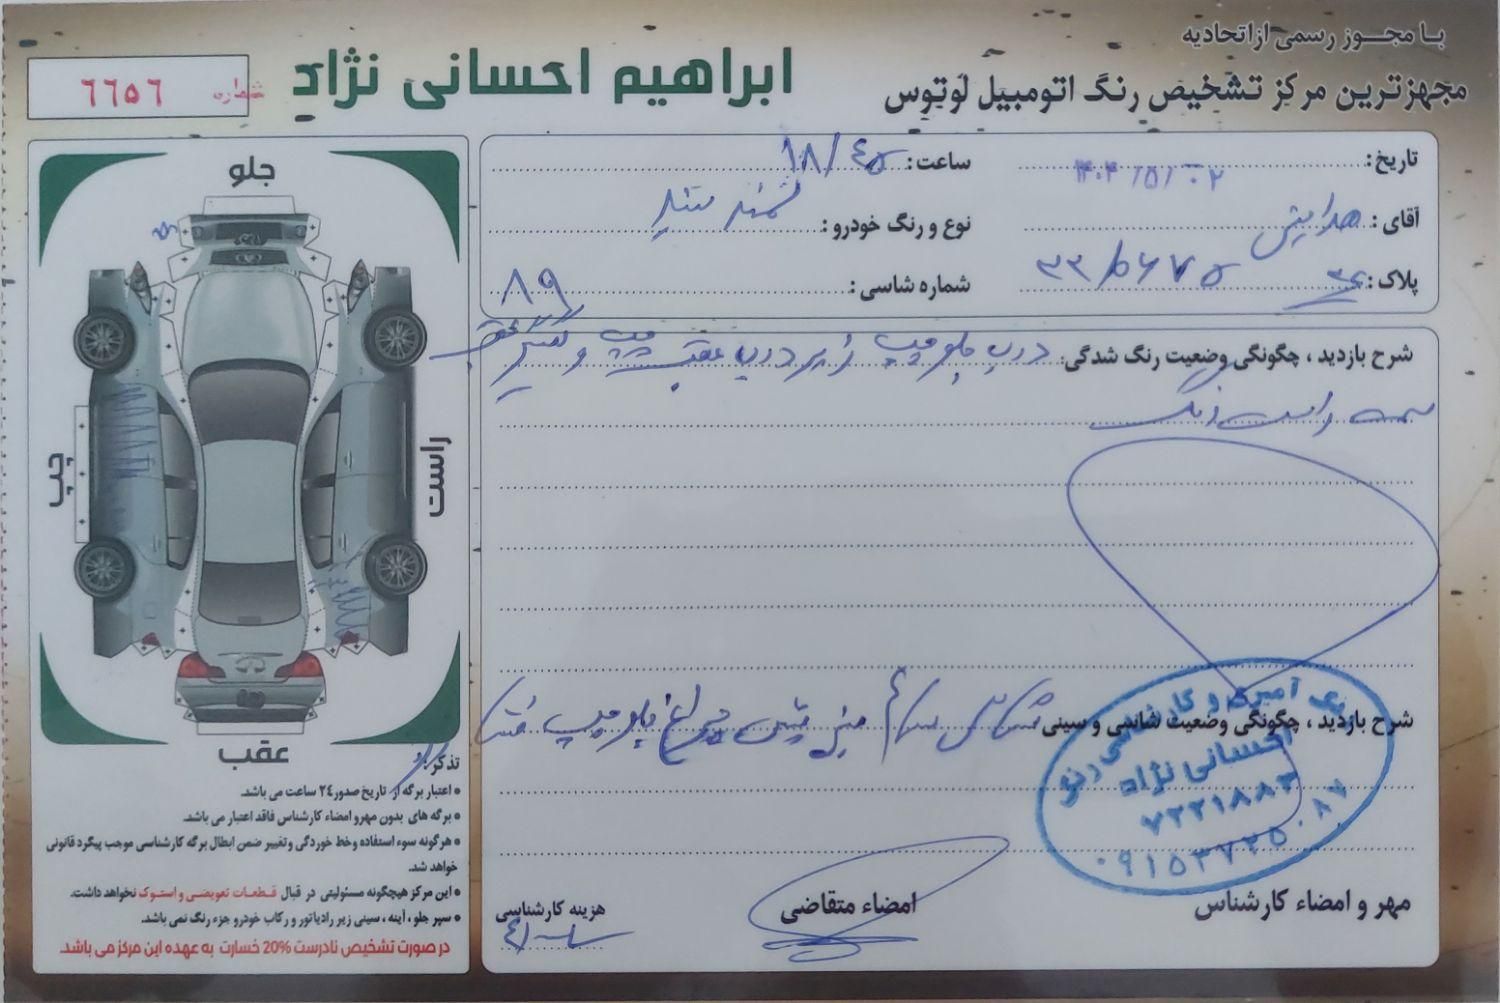 با مجوز رسمی از اتحادیه
مجهزترین مرکز تشخیص رنگ اتومبیل لوتوس
ابراهیم احسانی نژاد
شماره ٦٦٥٦
تاریخ: ۱۴۰۴/۵/۰۲
ساعت: ١٨/٤٥
آقای:
نوع و رنگ خودرو: سمند سفید
پلاک:
شماره شاسی: ٨٩
شرح بازدید ، چگونگی وضعیت رنگ شدگی: درب جلو چپ زیر درب عقب چپ و گلگیر عقب
سمت راست رنگ
شرح بازدید ، چگونگی وضعیت شاسی و سینی سالم چراغ جلو چپ
احسانی نژاد
٧٢٢١٨٨٣
٠٩١٥٣٧٢٥٠٨٧
مهر و امضاء کارشناس
امضاء متقاضی
هزینه کارشناسی
جلو
چپ
راست
عقب
تذکر:
• اعتبار برگه از تاریخ صدور ٢٤ ساعت می باشد.
• برگه های بدون مهر و امضاء کارشناس فاقد اعتبار می باشد.
• هرگونه سوء استفاده و خط خوردگی و تغییر ضمن ابطال برگه کارشناسی موجب پیگرد قانونی
خواهد شد.
• این مرکز هیچگونه مسئولیتی در قبال قطعات تعویضی و استوک نخواهد داشت.
• سپر جلو ، آینه ، سینی زیر رادیاتور و رکاب خودرو جزء رنگ نمی باشد.
در صورت تشخیص نادرست 20% خسارت به عهده این مرکز می باشد.